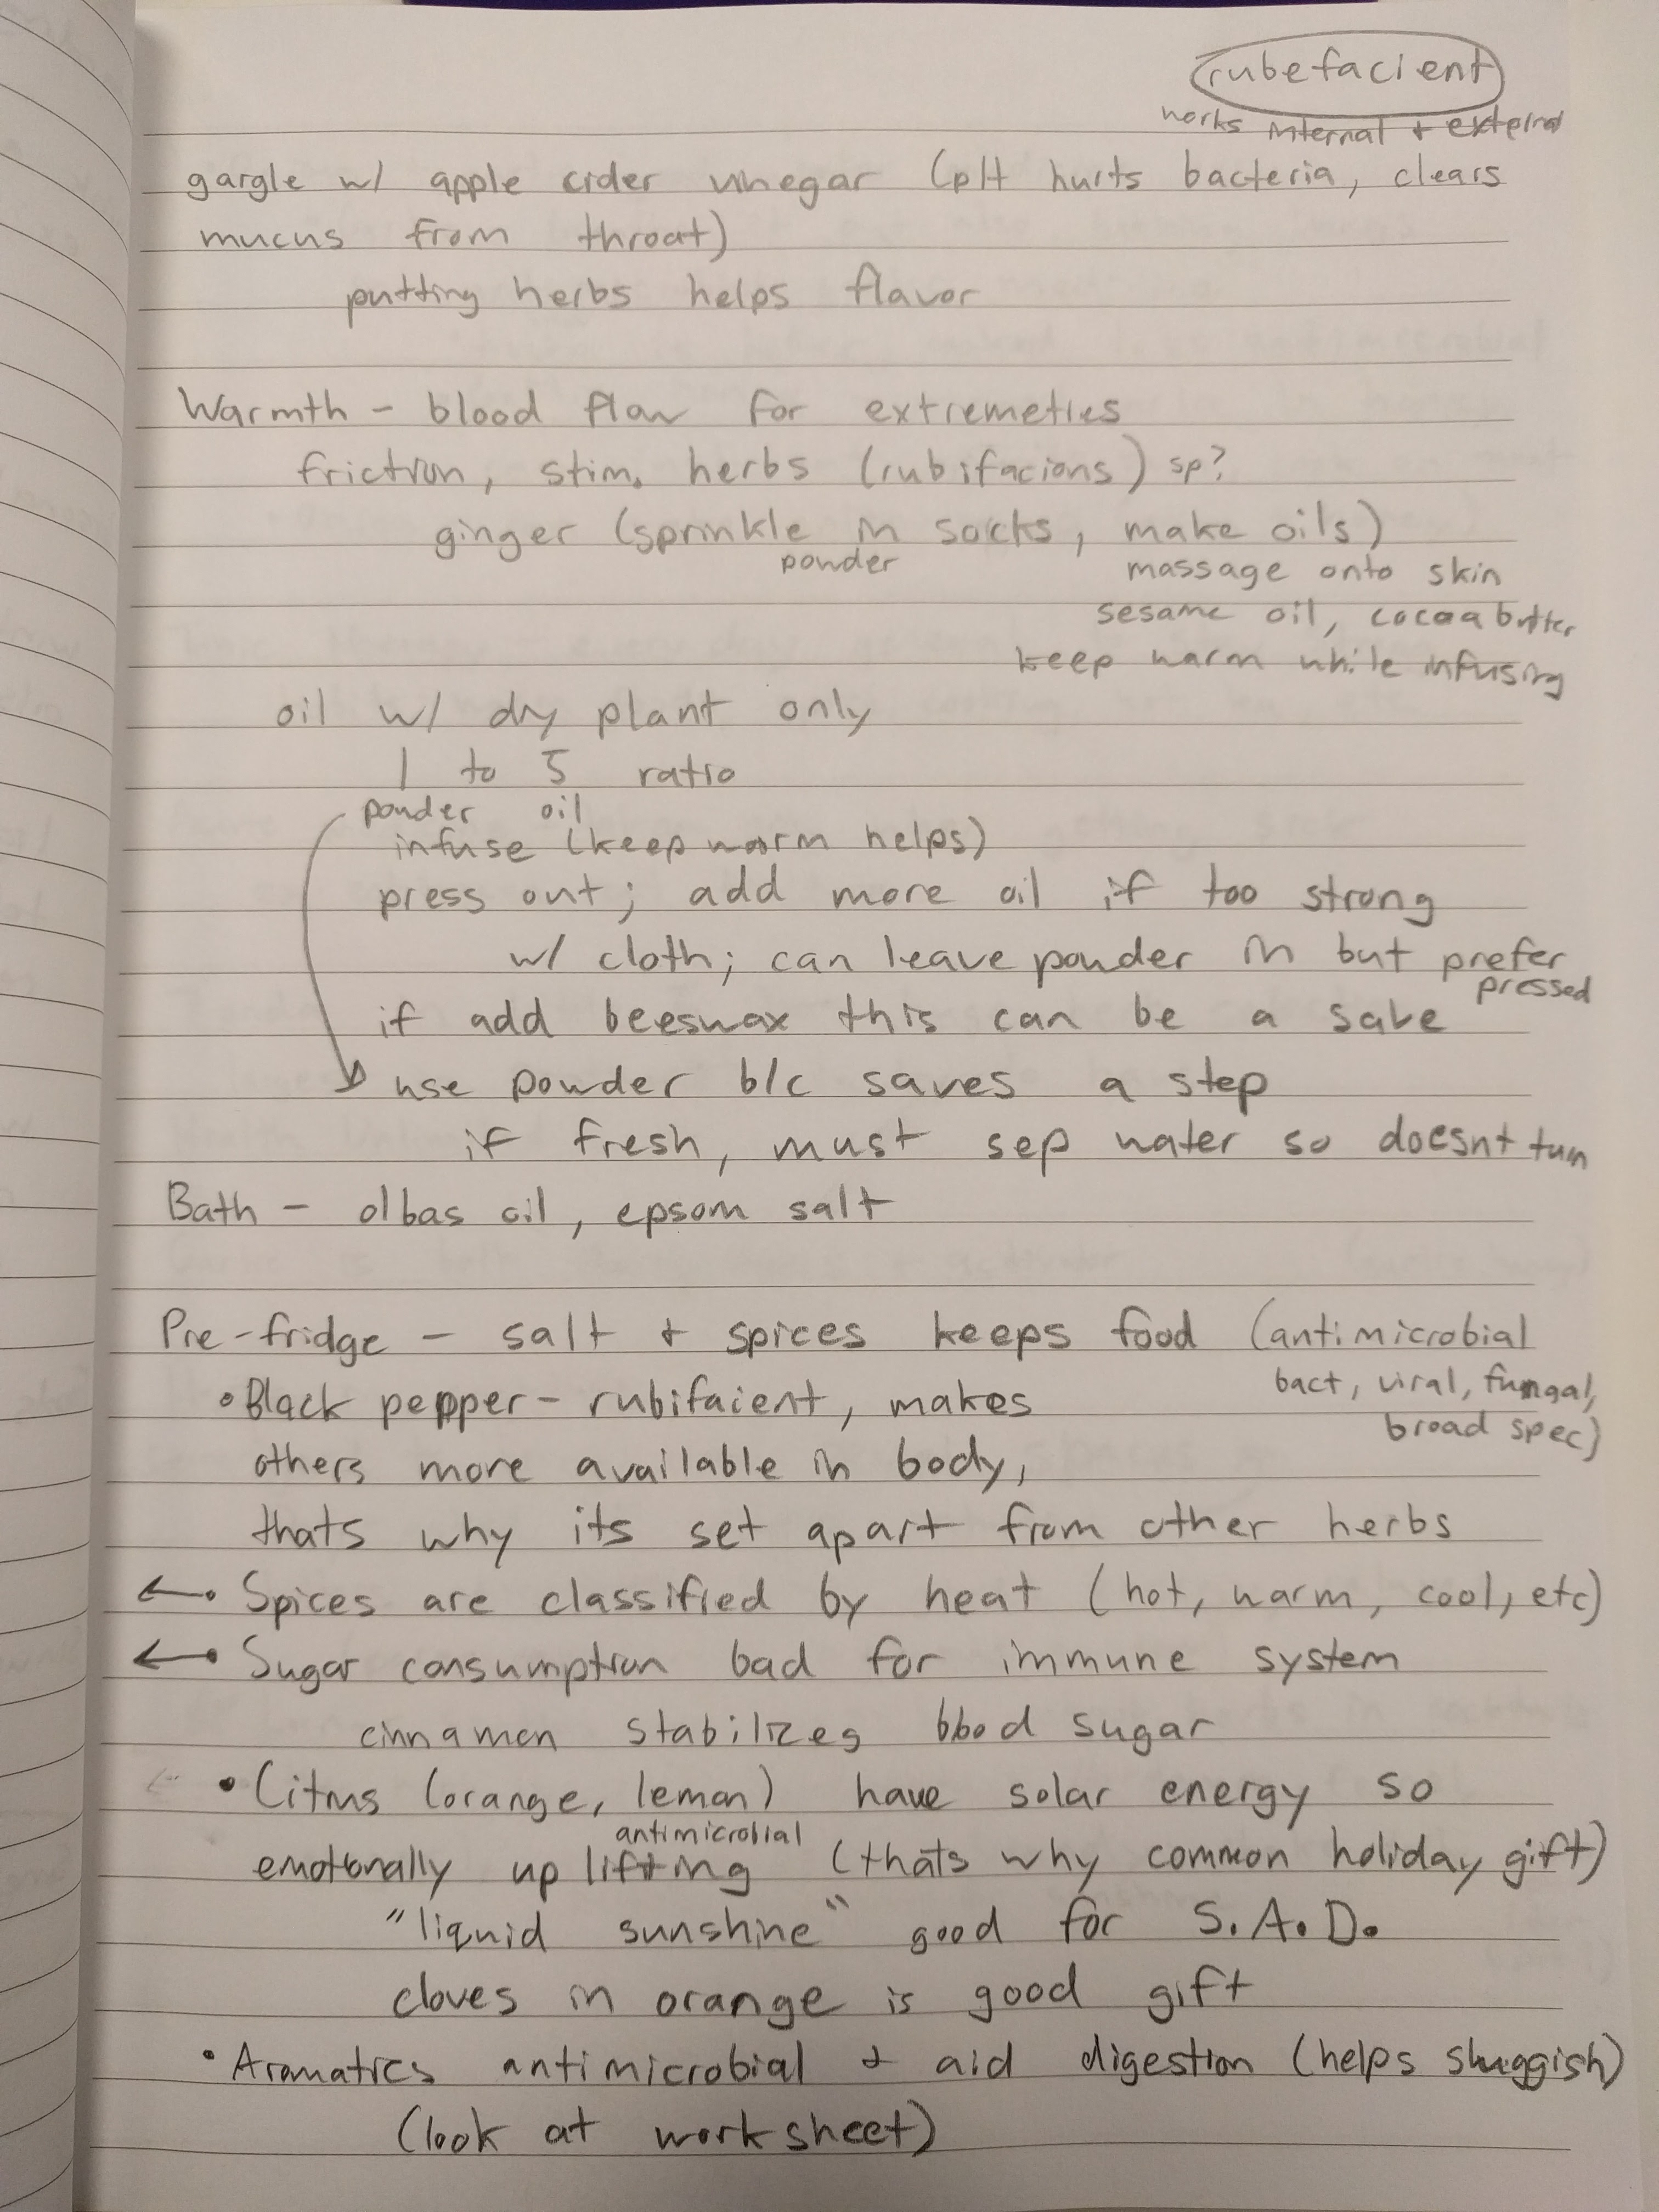 rubefacient
works internal + external
gargle w/ apple cider vinegar (pH hurts bacteria, clears
mucus from throat)
putting herbs helps flavor
Warmth - blood flow for extremeties
friction, stim. herbs (rubifacions) sp?
ginger (sprinkle in socks, make oils)
powder
massage onto skin
sesame oil, cocoa butter
keep warm while infusing
oil w/ dry plant only
1 to 5 ratio
powder oil
infuse (keep warm helps)
press out; add more oil if too strong
w/ cloth; can leave powder in but prefer
pressed
if add beeswax this can be a salve
use powder b/c saves a step
if fresh, must sep water so doesnt turn
Bath - olbas oil, epsom salt
Pre-fridge - salt + spices keeps food (antimicrobial
bact, viral, fungal,
broad spec)
• Black pepper - rubifaient, makes
others more available in body,
thats why its set apart from other herbs
← • Spices are classified by heat (hot, warm, cool, etc)
← • Sugar consumption bad for immune system
cinnamon stabilizes blood sugar
• Citrus (orange, lemon) have solar energy so
antimicrobial
emotionally uplifting (thats why common holiday gift)
"liquid sunshine" good for S.A.D.
cloves in orange is good gift
• Aromatics antimicrobial + aid digestion (helps sluggish)
(look at worksheet)